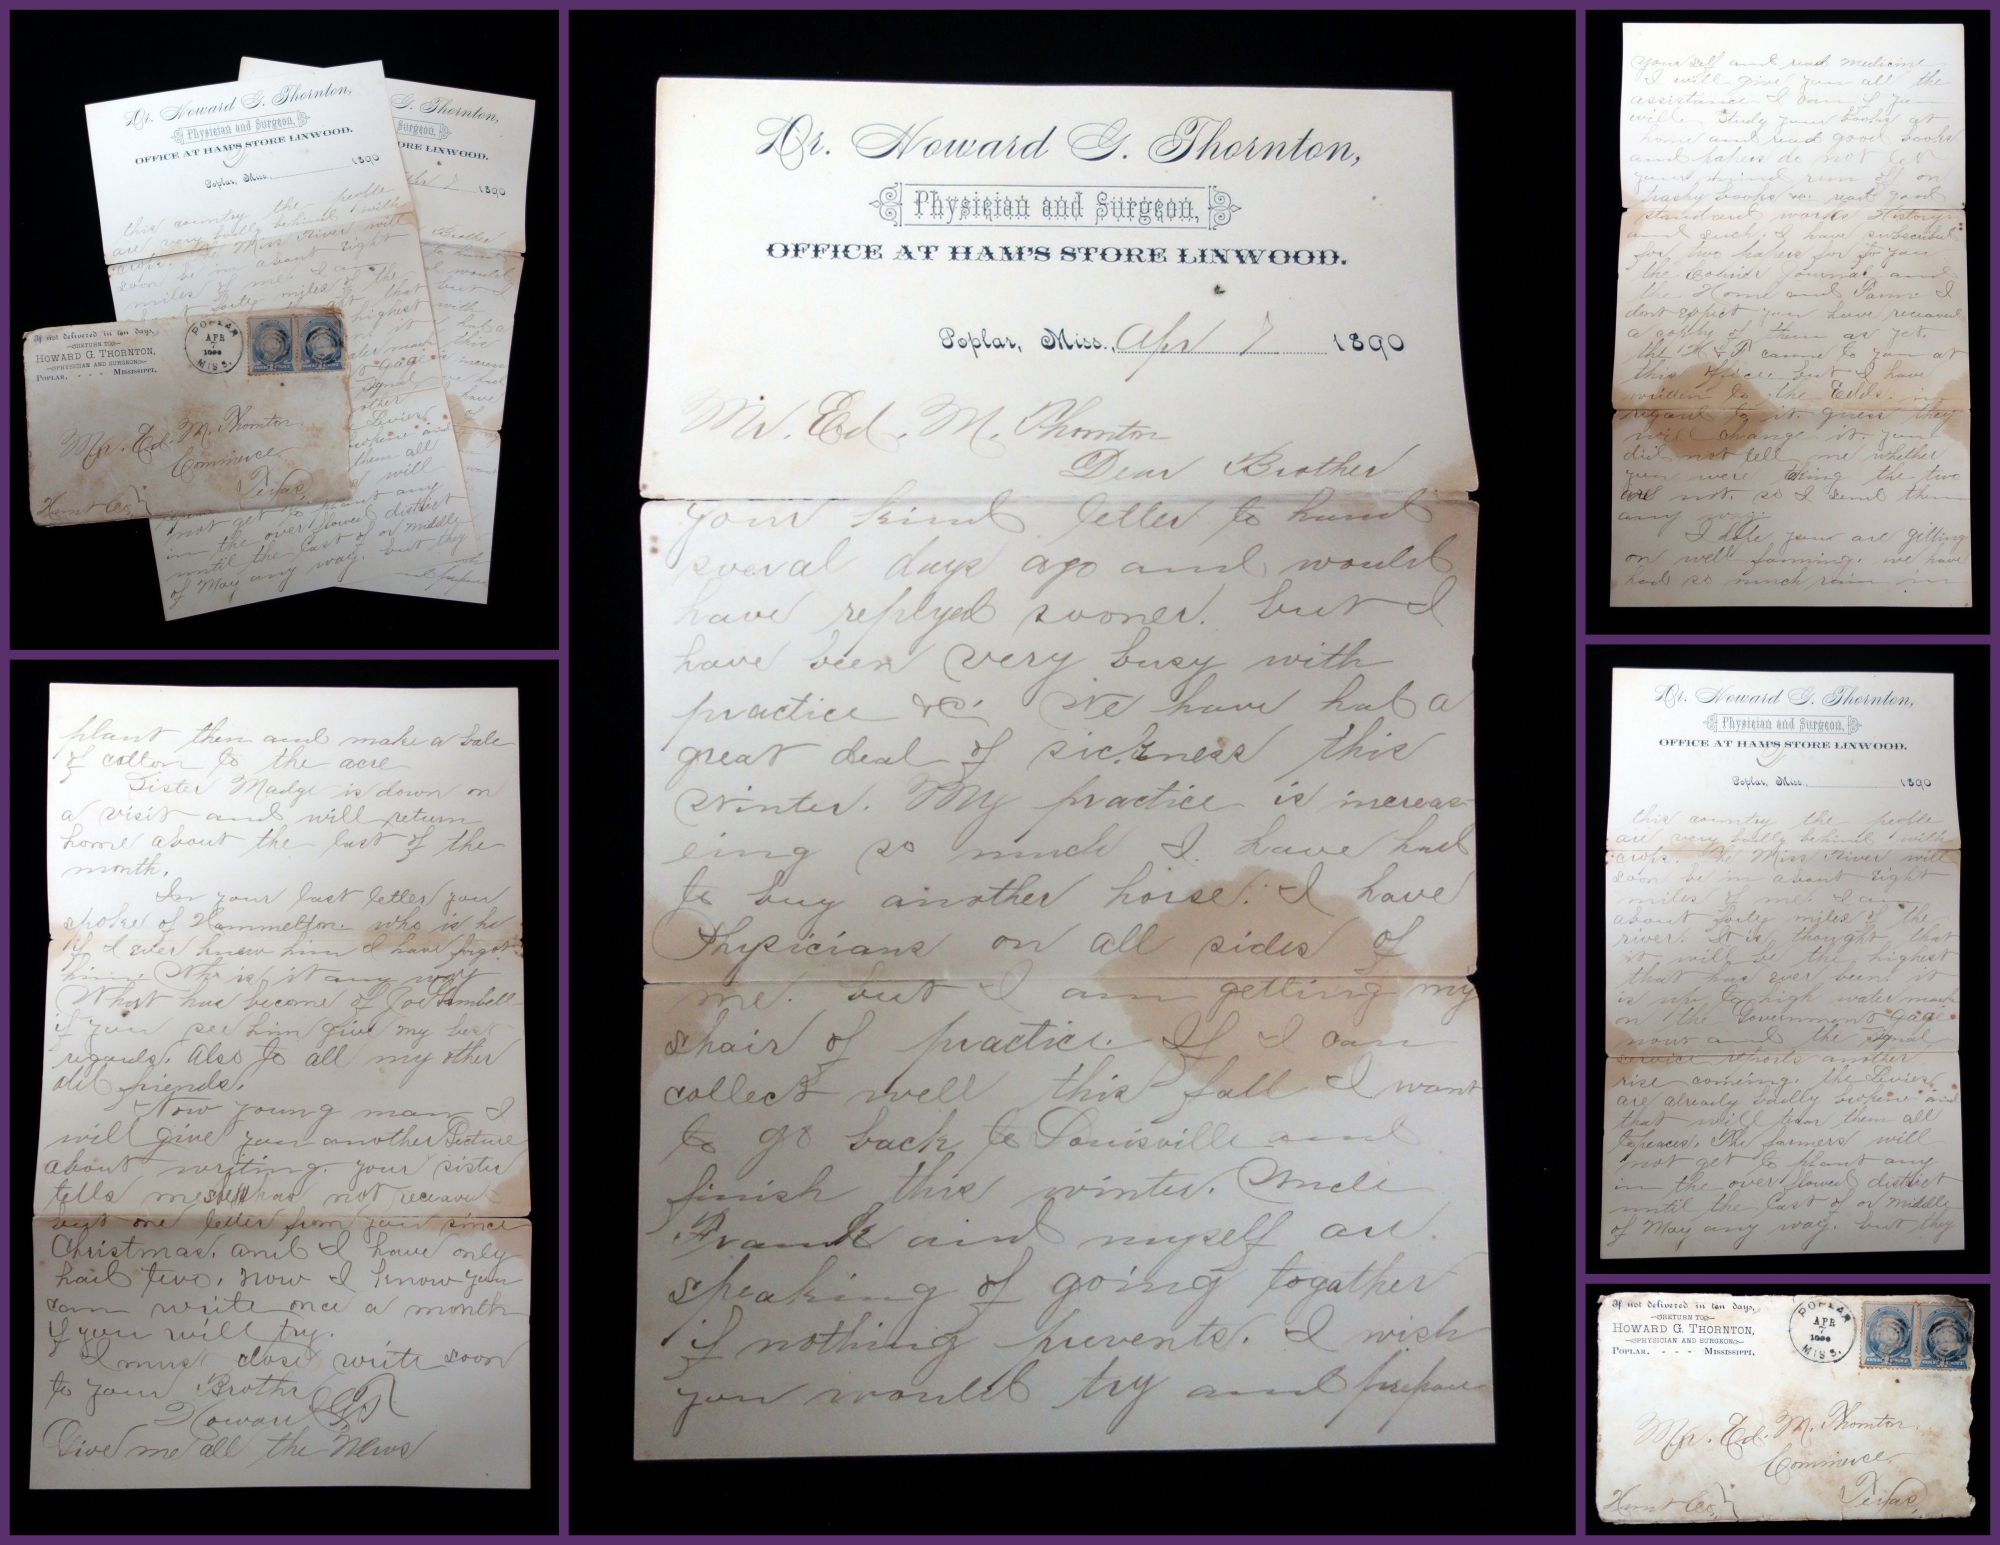 Dr. Howard G. Thornton,
Physician and Surgeon,
OFFICE AT HAM'S STORE LINWOOD.
Poplar, Miss., Apr 7 1890
Mr. Ed. M. Thornton
Dear Brother
your kind letter to hand
sveral days ago and would
have replyed sooner. but I
have been very busy with
practice &c. We have had a
great deal of sickness this
Winter. My practice is increas
eing so much I have had
to buy another horse. I have
Physicians on all sides of
me. but I am getting my
shair of practice. If I can
collect well this fall I want
to go back to Louisville and
finish this winter. Uncle
Frank and myself are
speaking of going togather
if nothing prevents. I wish
you would try and prepare
your self and read medicine
I will give you all the
assistance I can if you
will. Study your books at
home and read good books
and papers do not let
your mind run off on
trashy books &c. read good
standard works History
and such. I have subscribed
for two papers for you
the Courier Journal and
the Home and Farm I
dont expect you have receaved
a coppy of them as yet.
the H & F came to you at
this office but I have
written to the Edds. in
regard to it. guess they
will change it. you
did not tell me whether
you were taking the two
or not. so I send them
any way.
I hope your are gitting
on well farming. we have
had so much rain in
Dr. Howard G. Thornton,
Physician and Surgeon,
OFFICE AT HAM'S STORE LINWOOD.
Poplar, Miss., 1890
this country the people
are very badly behind with
crops. The Miss River will
soon be in about eight
miles of me. I am
about forty miles of the
river. It is thought that
it will be the highest
that has ever been. it
is up to high water mark
on the Government gage
now and the Signal
service reports another
rise comeing. the Levies
are already badly broken and
that will tear them all
to peaces. The farmers will
not get to plant any
in the over flowed district
until the last of or middle
of May any way. but they
plant then and make a bale
of cotton to the acre
Sister Madge is down on
a visit and will return
home about the last of the
month.
In your last letter you
spoke of Hammelton. who is he
if I ever knew him I have forgot
him. Who is it any way
What has become of Joe Gambell
if you see him give my best
regards. Also to all my other
old friends.
Now young man I
will give you another Lecture
about writing. your sister
tells me she has not receaved
but one letter from you since
Christmas. and I have only
had two. now I know you
can write once a month
if you will try.
I must close write soon
to your Brothr
Howard G. T.
Give me all the News
If not delivered in ten days,
RETURN TO
HOWARD G. THORNTON,
PHYSICIAN AND SURGEON
POPLAR, - - - MISSISSIPPI.
POPLAR
APR
7
1890
MISS.
Mr. Ed. M. Thornton
Commerce
Texas,
Hunt Co,